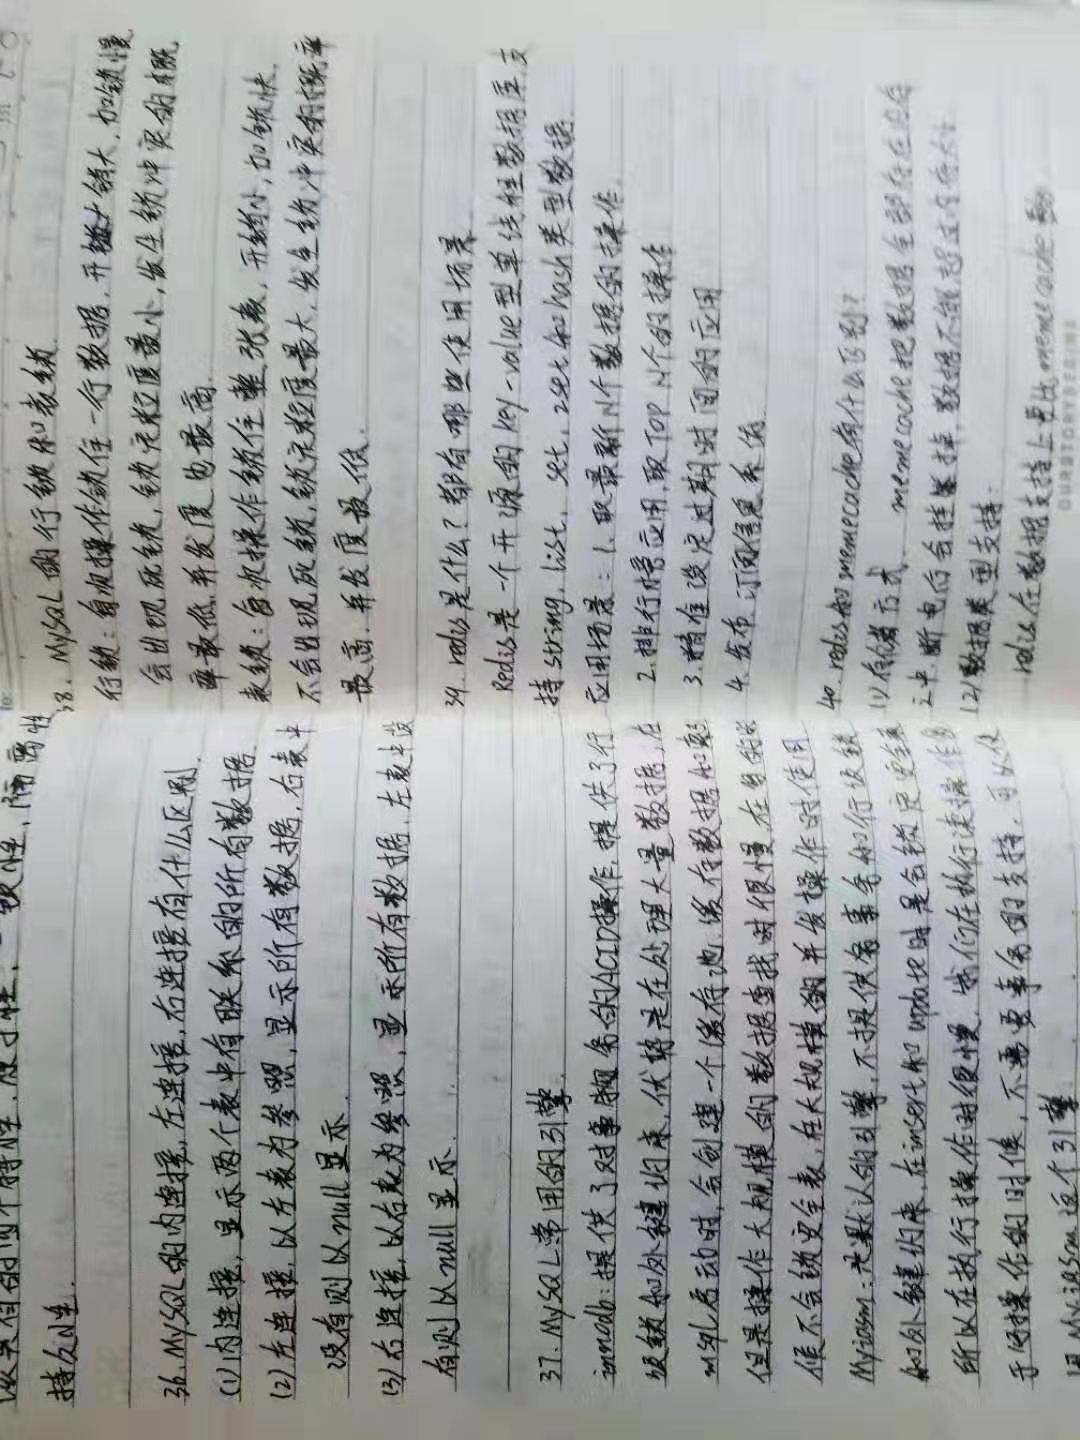 持久性.
36. MySQL的内连接, 左连接, 右连接有什么区别.
(1) 内连接, 显示两个表中有联系的所有数据.
(2) 左连接, 以左表为参照, 显示所有数据, 右表中
没有则以null显示.
(3) 右连接, 以右表为参照, 显示所有数据, 左表中没
有则以null显示.
37. MySQL常用的引擎.
innodb: 提供了对事物务的ACID操作, 提供了行
级锁和外键约束, 优势是在处理大量数据, 在
时, 会创建一个缓存池, 缓存数据和
但是操作大规模的数据查找时很慢,
使不会锁定全表, 在大规模的并发操作时使用
Myiasm: 是默认的引擎, 不提供事务和行级锁
和外键约束, 在insert和update时是会锁定
所以在执行操作时很慢, 我们在执行读操作
于写操作的时候, 不需要事务的支持, 可以使
这个引擎
38. MySQL的行锁和表锁
行锁: 每次操作锁住一行数据, 开销大, 加锁慢
会出现死锁, 锁定粒度最小, 发生锁冲突的概
率最低, 并发度也最高.
表锁: 每次操作锁住整张表, 开销小, 加锁快.
不会出现死锁, 锁定粒度最大, 发生锁冲突的概率
最高, 并发度最低.
39. redis是什么? 都有哪些使用场景
Redis是一个开源的key-value型单线程数据库, 支
持string, list, set, zset和hash类型数据.
应用场景: 1. 取最新N个数据的操作.
2. 排行榜应用, 取TOP N个的操作
3. 精准设定过期时间的应用
4. 发布、订阅信息系统
40. redis和memecache有什么区别?
(1) 存储方式. memecache把数据全部存在内存
之中, 断电后会挂掉, 数据不能超过内存大小
(2) 数据类型支持:
redis在数据支持上要比memecache
OURSTORYBEGINS